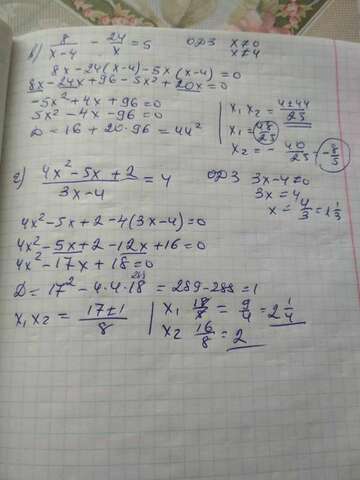 в) 8/(x-4) - 24/x = 5 ОДЗ x≠0
x≠4
8x-24(x-4)-5x(x-4)=0
8x-24x+96-5x²+20x=0
-5x²+4x+96=0
5x²-4x-96=0
D=16+20·96=44²
x₁ x₂ = (4±44)/25
x₁ = 48/25
x₂ = - 40/25 = -8/5
г) (4x²-5x+2)/(3x-4) = 4 ОДЗ 3x-4≠0
3x=4
x=4/3=1 1/3
4x²-5x+2-4(3x-4)=0
4x²-5x+2-12x+16=0
4x²-17x+18=0
D=17²-4·4·18=289-288=1
x₁ x₂ = (17±1)/8
x₁ 18/8 = 9/4 = 2 1/4
x₂ 16/8 = 2